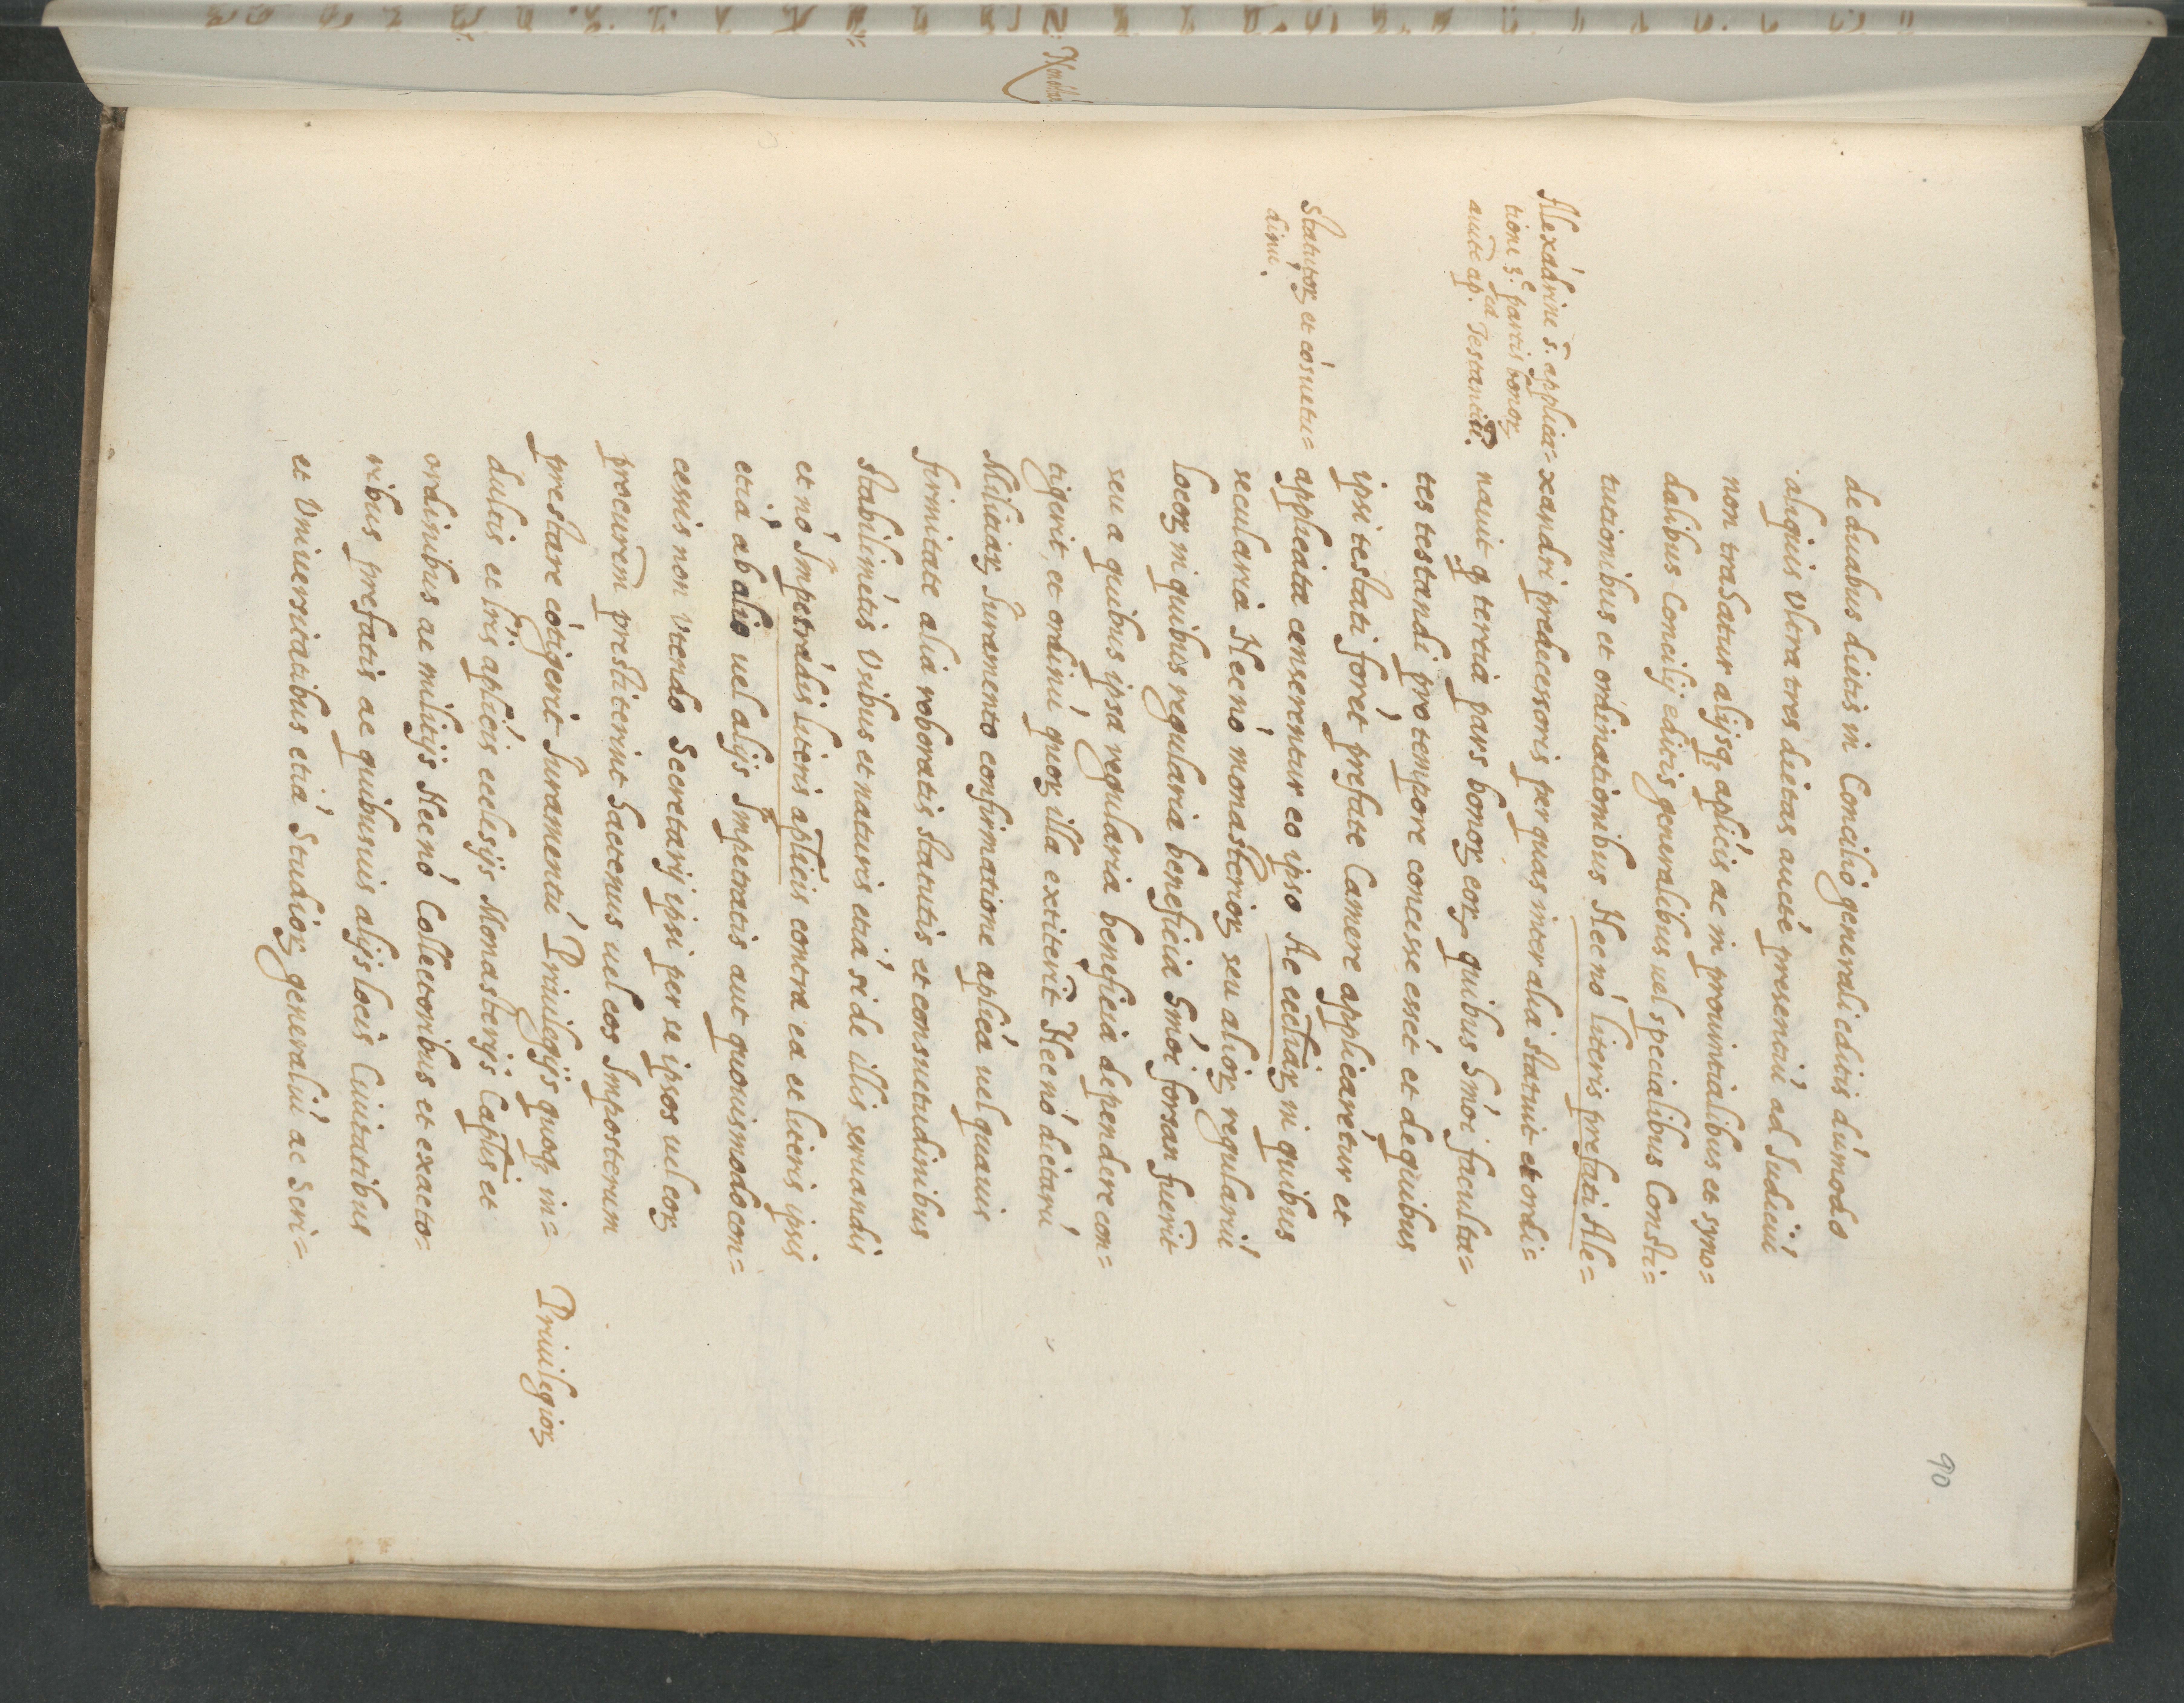 90
de duabus dietis in Concilio generali editis dúmodo
aliquis Vltra tres dietas aucté presentiú ad Iudiciú
non trahatur alijsq; aplicis ac in prouintialibus et syno=
dalibus Concilij editis generalibus uel specialibus Consti=
tutionibus et ordinationibus Necnó literis prefati Ale=
xandri predecessoris per quas inter alia statuit et ordi=
nauit q tertia pars bonoꝝ eoꝝ quibus Smói faculta=
tes testandi pro tempore concesse enét et de quibus
ipsi testati forét prefate Camere applicarétur et
applicata censerentur eo ipso Ac eccliaꝝ in quibus
secularia Necnó monasterioꝝ seu alioꝝ regulariú
locoꝝ in quibus regularia beneficia Smói forsan fuerit
seu a quibus ipsa regularia beneficia dependere con=
tigerit, et ordinú quoꝝ illa extiterit Necnó dictarú
Militiaꝝ Iuramento confirmatione aplica uel quauis
firmitate alia roboratis statutis et consuetudinibus
stabilimétis Vsibus et naturis etiá si de illis seruandis
et nó Impetrádis literis aplicis contra ea et literis ipsis
etiá ab alio uel alijs Impetratis aut quouismodo con=
cessis non Vtendo Secretarij ipsi per se ipsos uel eoꝝ
procurem prestiterint Hactenus uel eos Imposterum
prestare cótigerit Iuramentú Priuilegijs quoq; in=
dultis et lris aplicis ecclesijs Monasterijs Caplis et
ordinibus ac militijs Necnó Collectoribus et exacto=
ribus prefatis ac quibusuis alijs locis Ciuitatibus
et Vniuersitatibus etiá Studioꝝ generaliú ac Seri=
Alexádrine s. applica=
tione 3.e partis bonoꝝ
Testantiú.
Statutoꝝ et cósuetu=
dinú.
Priuilegioꝝ